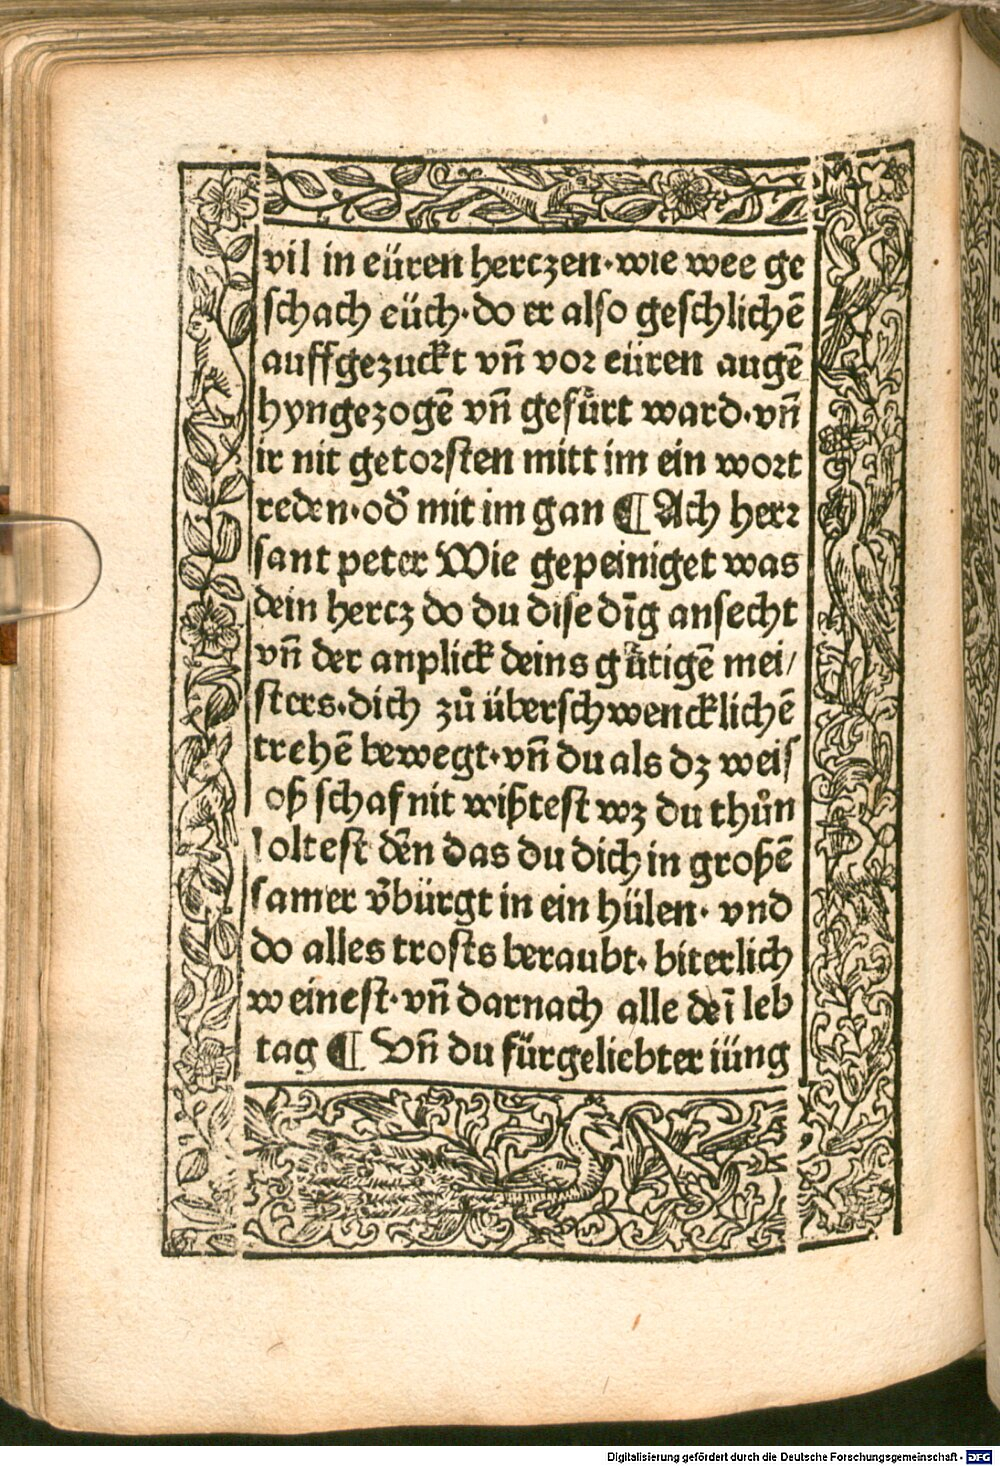 vil in eüren hertzen·wie wee ge
schach eüch·do er also geschlichē
auffgezuckt vn̄ vor eüren augē
hyngezogē vn̄ gefürt ward·vn̄
ir nit getorsten mitt im ein wort
reden·od̄ mit im gan ¶ Ach herr
sant peter Wie gepeiniget was
dein hercz do du dise dīg ansecht
vn̄ der anplick deins gůtigē mei/
sters·dich zů überschwencklichē
trehē bewegt·vn̄ du als dz weis
oß schaf nit wißtest wz du thůn
soltest dēn das du dich in großē
samer v̄bürgt in ein hülen· vnd
do alles trosts beraubt·biterlich
weinest·vn̄ darnach alle deī leb
tag ¶ Vn̄ du fürgeliebter iüng
Digitalisierung gefördert durch die Deutsche Forschungsgemeinschaft - DFG